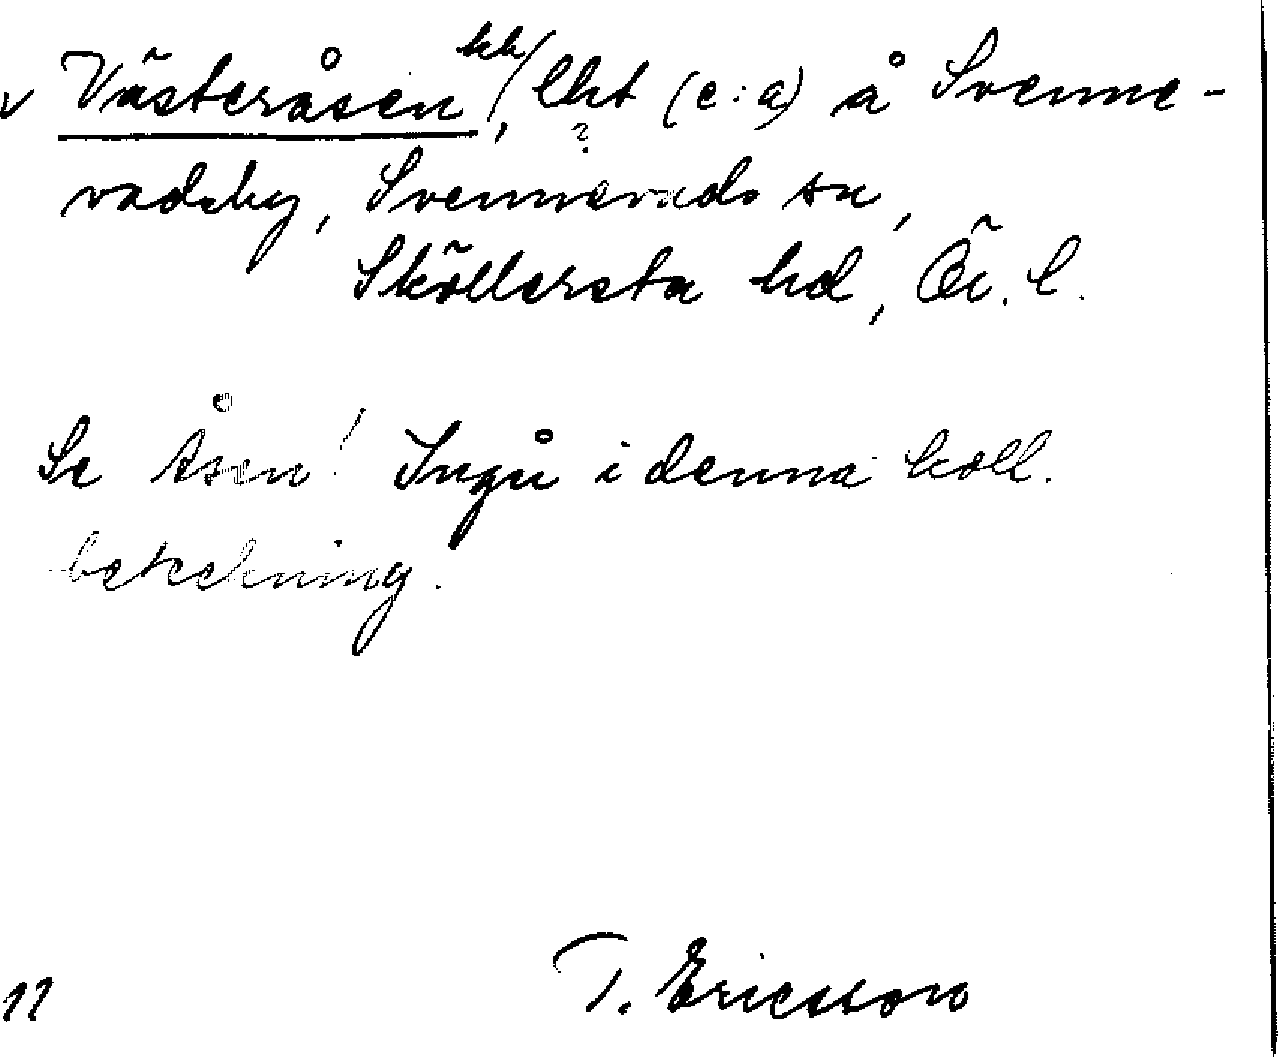 v Västeråsen kk/, lht (e:a) å Svenne-
?
vadsby, Svennevads sn,
Sköllersta hd, Ör. l.
Se Åsen! Ingå i denna koll.
beteckning.
11 T. Ericsson